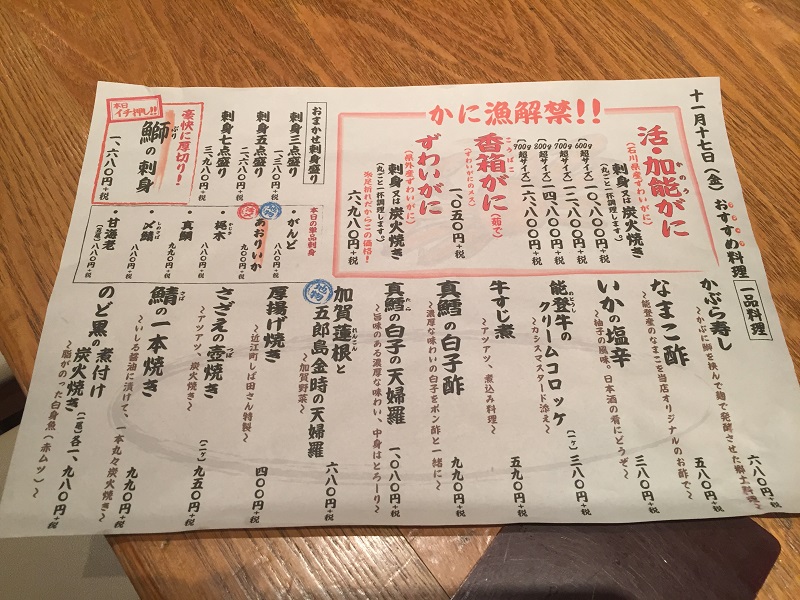 十一月十七日（金）おすすめ料理
かに漁解禁！！
活・加能がに
かのう
（石川県産ずわいがに）
刺身又は炭火焼き
（丸ごと一杯調理します。）
【600g超サイズ】一〇、八〇〇円+税
【700g超サイズ】一二、八〇〇円+税
【800g超サイズ】一四、八〇〇円+税
【900g超サイズ】一六、八〇〇円+税
こうばこ
香箱がに（茹で）
（ずわいがにのメス）
一、〇五〇円+税
ずわいがに
（県外産ずわいがに）
刺身又は炭火焼き
（丸ごと一杯調理します。）
六、九八〇円+税
※足折れだからこの価格！
おまかせ刺身盛り
刺身三点盛り
一、三八〇円+税
刺身五点盛り
二、六八〇円+税
刺身七点盛り
三、九八〇円+税
本日イチ押し！！
豪快に厚切り！
鰤の刺身
ぶり
一、六八〇円+税
本日の単品刺身
・がんど
八八〇円+税
・あおりいか
九〇〇円+税
・梶木
かじき
八八〇円+税
・真鯛
九九〇円+税
・〆鯖
しめさば
八八〇円+税
・甘海老
（五尾）八八〇円+税
一品料理
かぶら寿し
～かぶに鰤を挟んで麹で発酵させた郷土料理～
六八〇円+税
なまこ酢
～能登産のなまこを当店オリジナルのお酢で～
五八〇円+税
いかの塩辛
～柚子の風味。日本酒の肴にどうぞ～
三八〇円+税
能登牛のクリームコロッケ
～カシスマスタード添え～
（二ヶ）三八〇円+税
牛すじ煮
～アツアツ、煮込み料理～
五九〇円+税
真鱈の白子酢
～濃厚な味わいの白子をポン酢と一緒に～
九九〇円+税
真鱈の白子の天婦羅
～旨味のある濃厚な味わい、中身はとろーり～
一、〇八〇円+税
地物
加賀蓮根と五郎島金時の天婦羅
れんこん
～加賀野菜～
六八〇円+税
厚揚げ焼き
～近江町しば田さん特製～
四〇〇円+税
さざえの壺焼き
つぼ
～アツアツ、炭火焼き～
（二ヶ）九五〇円+税
鯖の一本焼き
さば
～いしる醤油に漬けて、一本丸々炭火焼き～
九九〇円+税
のど黒の煮付け
炭火焼き
（一尾）各一、九八〇円+税
～脂がのった白身魚（赤ムツ）～